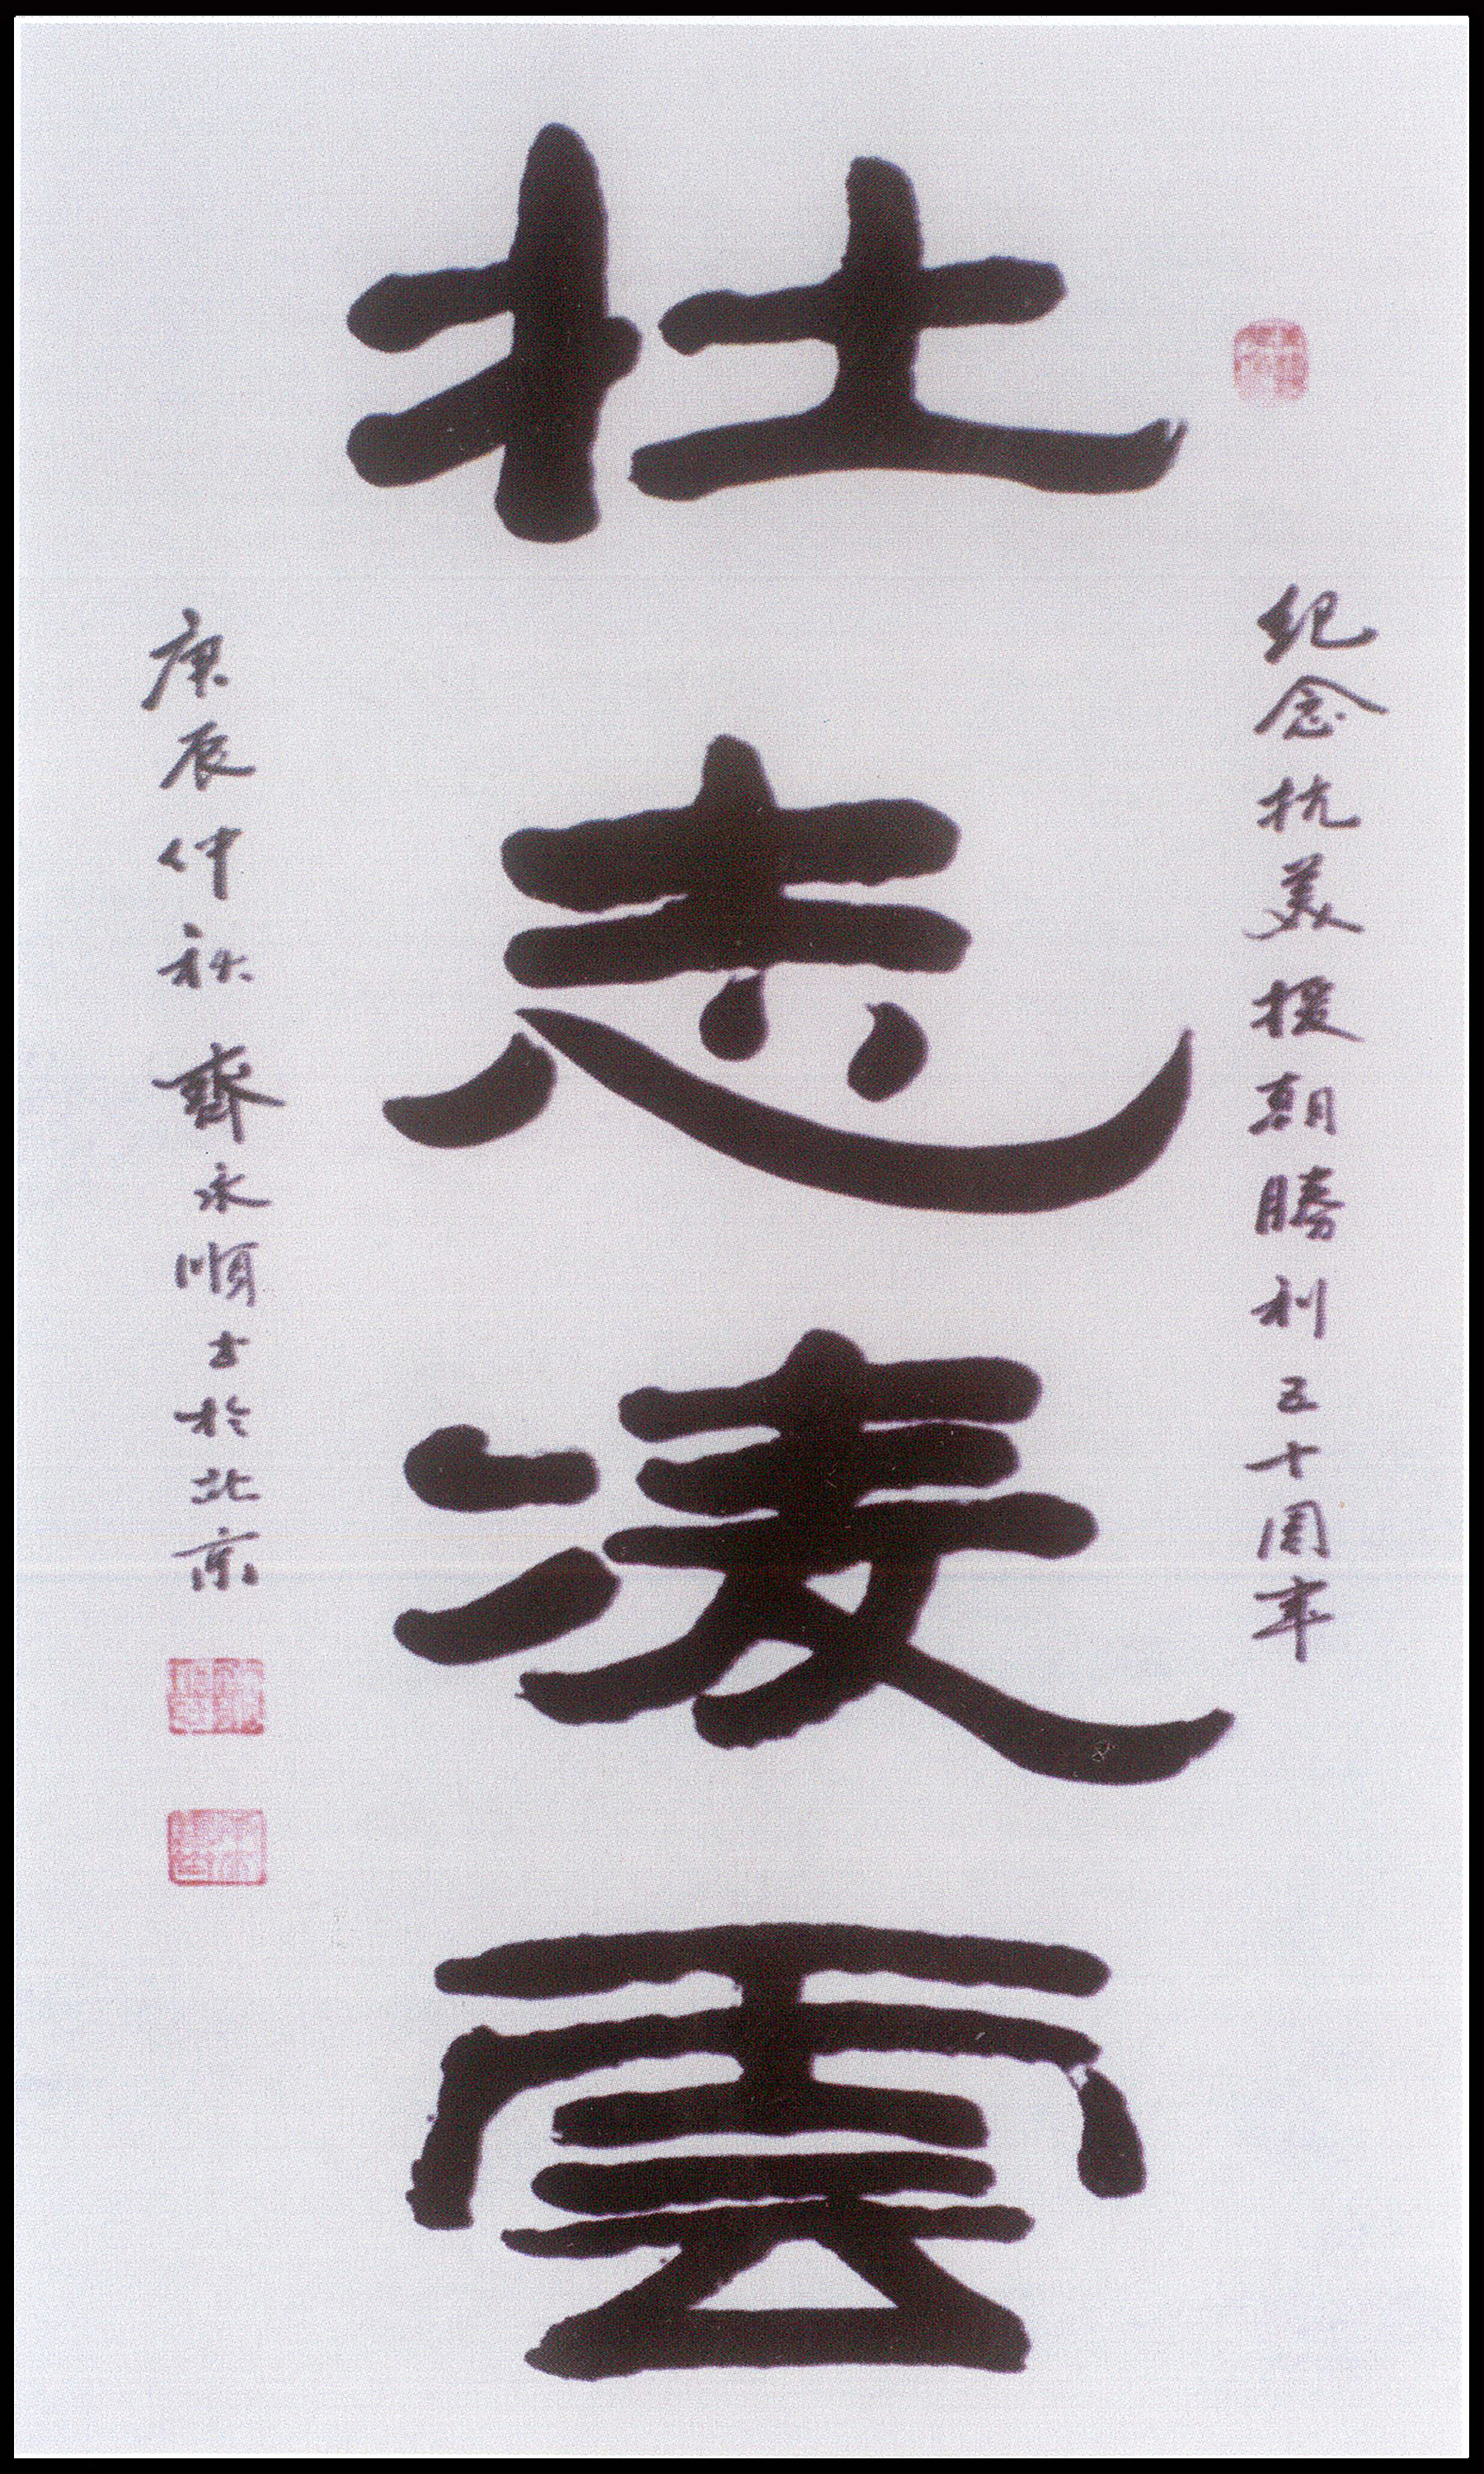 紀念抗美援朝勝利五十周年
壮志凌雲
庚辰仲秋 齊永順书於北京